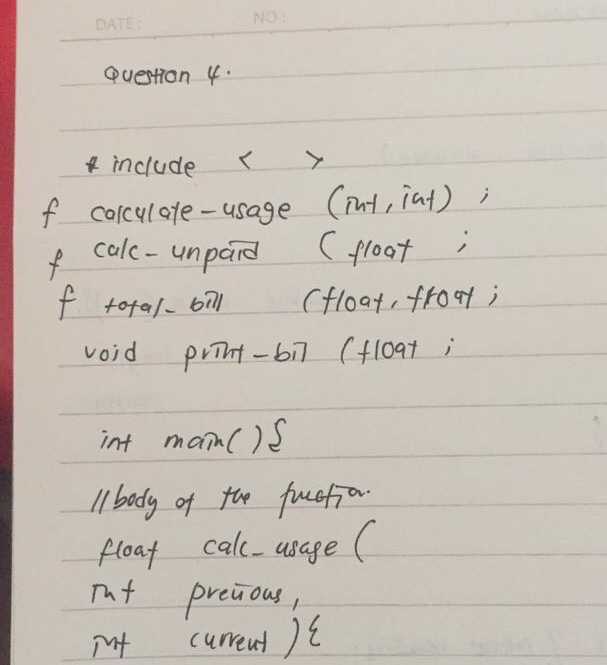 DATE: NO:
Question 4.
# include < >
f calculate-usage (int, int) ;
f calc-unpaid ( float ;
f total-bill (float, float ;
void print-bil (float ;
int main() {
// body of the function.
float calc-usage (
int previous,
int current ) {